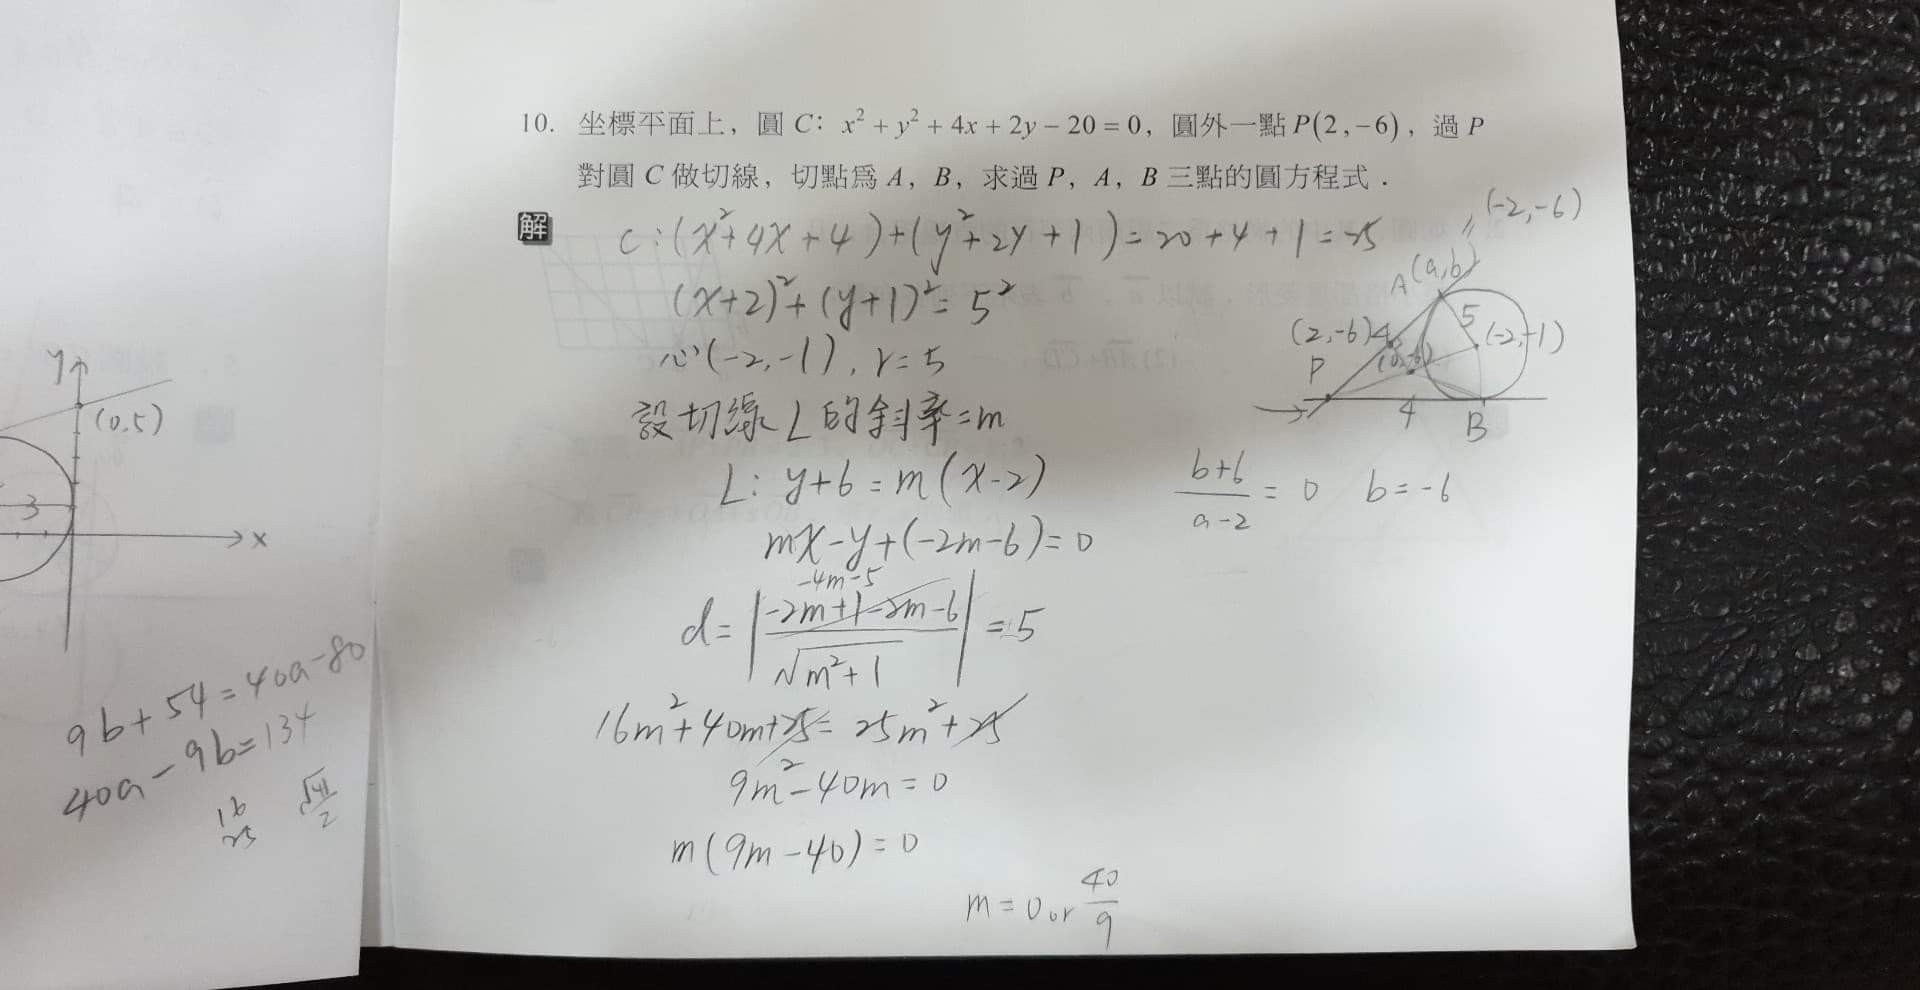 10. 坐標平面上，圓 C：x² + y² + 4x + 2y − 20 = 0，圓外一點 P(2, −6)，過 P
對圓 C 做切線，切點為 A，B，求過 P，A，B 三點的圓方程式．
解
C : (x²+4x+4)+(y²+2y+1)=20+4+1=25
(x+2)²+(y+1)²=5²
心(-2,-1), r=5
設切線L的斜率=m
L: y+6=m(x-2)
mx-y+(-2m-6)=0
-4m-5
d=|(-2m+1-2m-6)/√(m²+1)|=5
16m²+40m+25=25m²+25
9m²-40m=0
m(9m-40)=0
m=0 or 40/9
(-2,-6)
A(a,b)
(2,-6)
4
5
(-2,-1)
P
4
B
(b+6)/(a-2) = 0 b=-6
y
(0,5)
3
x
9b+54=40a-80
40a-9b=134
16
25
√41/2